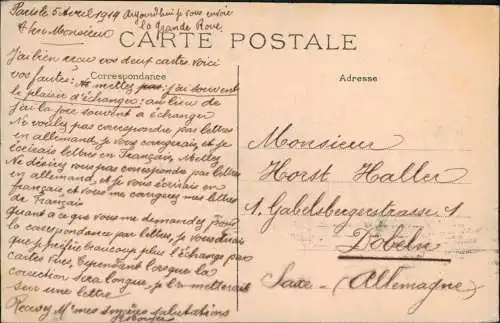 Paris le 5 Avril 1919 aujourd'hui je vous envoie
la Grande Roue
Cher Monsieur
CARTE POSTALE
J'ai bien reçu vos deux cartes voici
Correspondance
vos fautes: Ne mettez pas: j'ai souvent
le plaisir d'échanger; au lieu de
j'ai la joie souvent à échanger
Ne voulez pas correspondre par lettres
en allemand, je vous corrigerais, et je
écrirais lettres en Français. Mettez
Ne désirez vous pas correspondre par lettres
en allemand, et je vous écrirais en
français, et vous me corrigerez mes lettres
de Français
Quant à ce que vous me demandez pour
la correspondance par lettres, je vous dirais
que je préfère beaucoup plus l'échange par
cartes vues. Cependant lorsque la
correction sera longue, je la mettrais
sur une lettre.
Recevez Mr mes sincères salutations
Adresse
Monsieur
Horst Haller
1. Gabelsbergerstrasse 1
Döbeln
Saxe - (Allemagne)